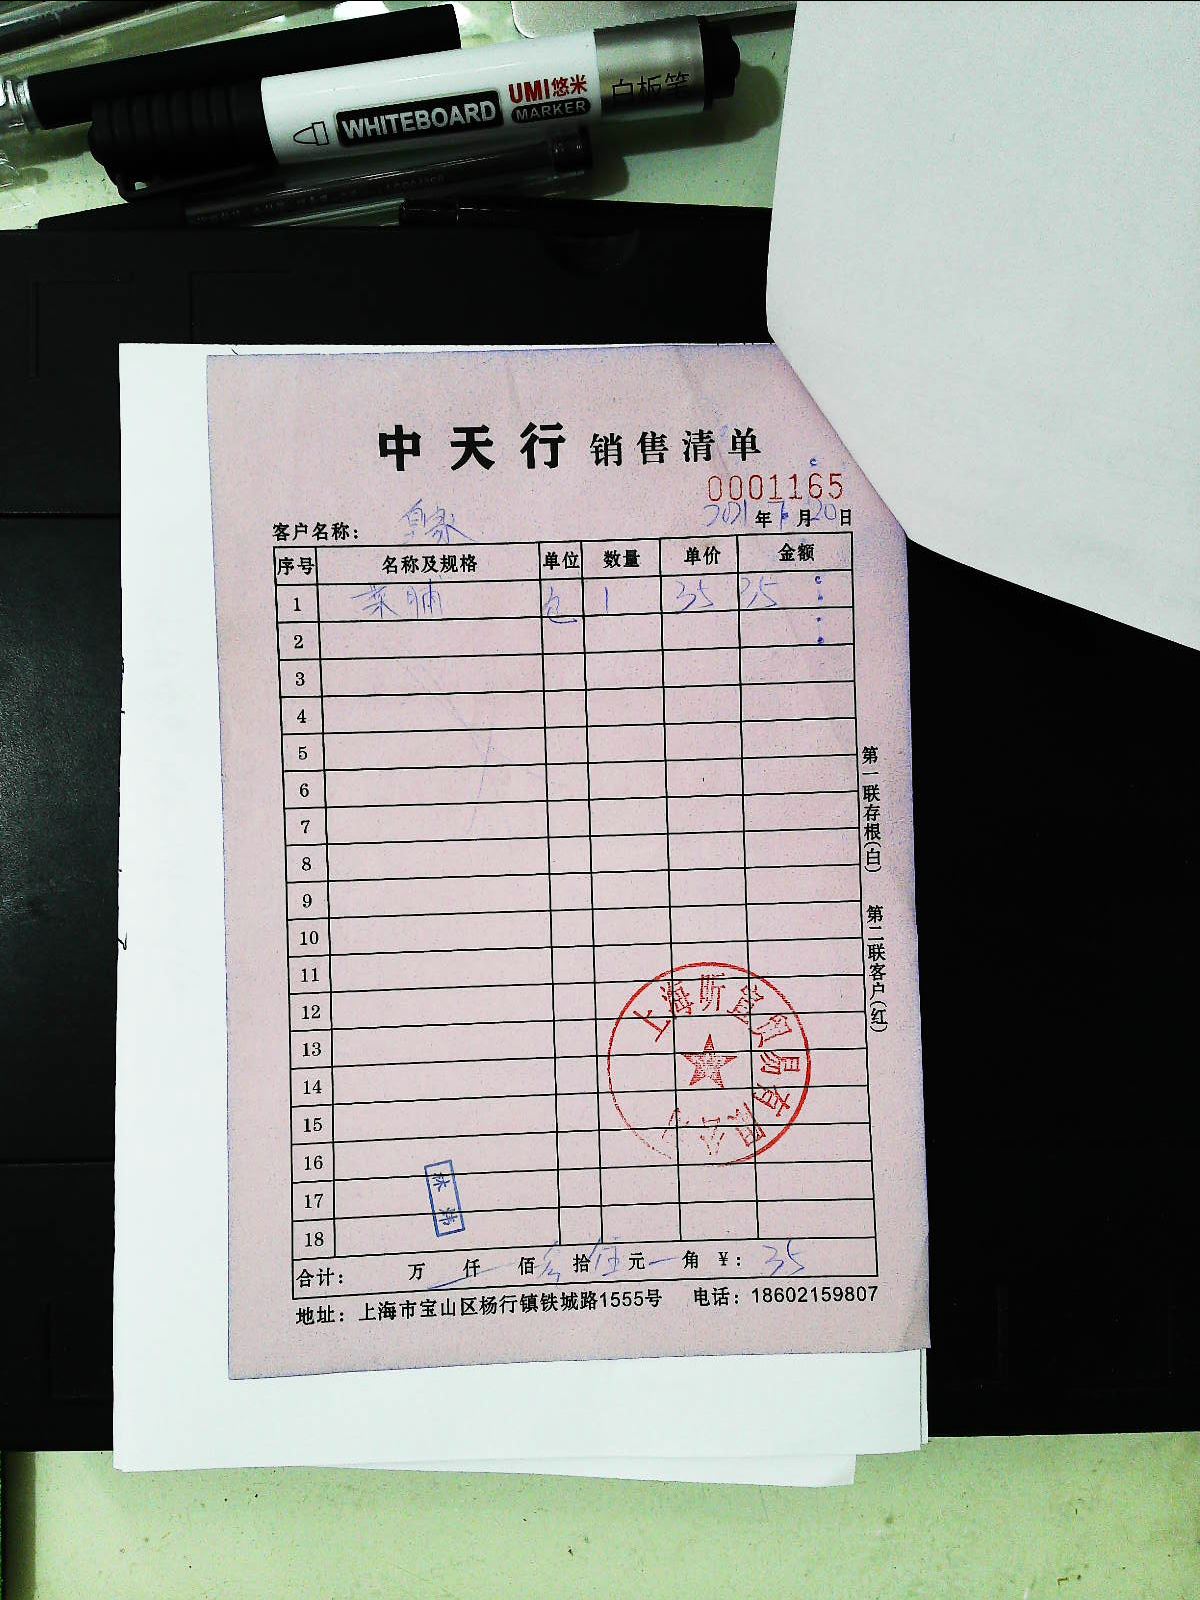 UMI悠米
WHITEBOARD MARKER 白板笔
中天行 销售清单
0001165
客户名称：
2021年 月20日
序号 名称及规格 单位 数量 单价 金额
1 菜脯 包 1 35 35
2
3
4
5
6
7
8
9
10
11
12
13
14
15
16
17
18
合计： 万 仟 佰 叁拾伍元 角 ￥：35
地址：上海市宝山区杨行镇铁城路1555号 电话：18602159807
第一联存根(白) 第二联客户(红)
上海昕 贸易有限公司